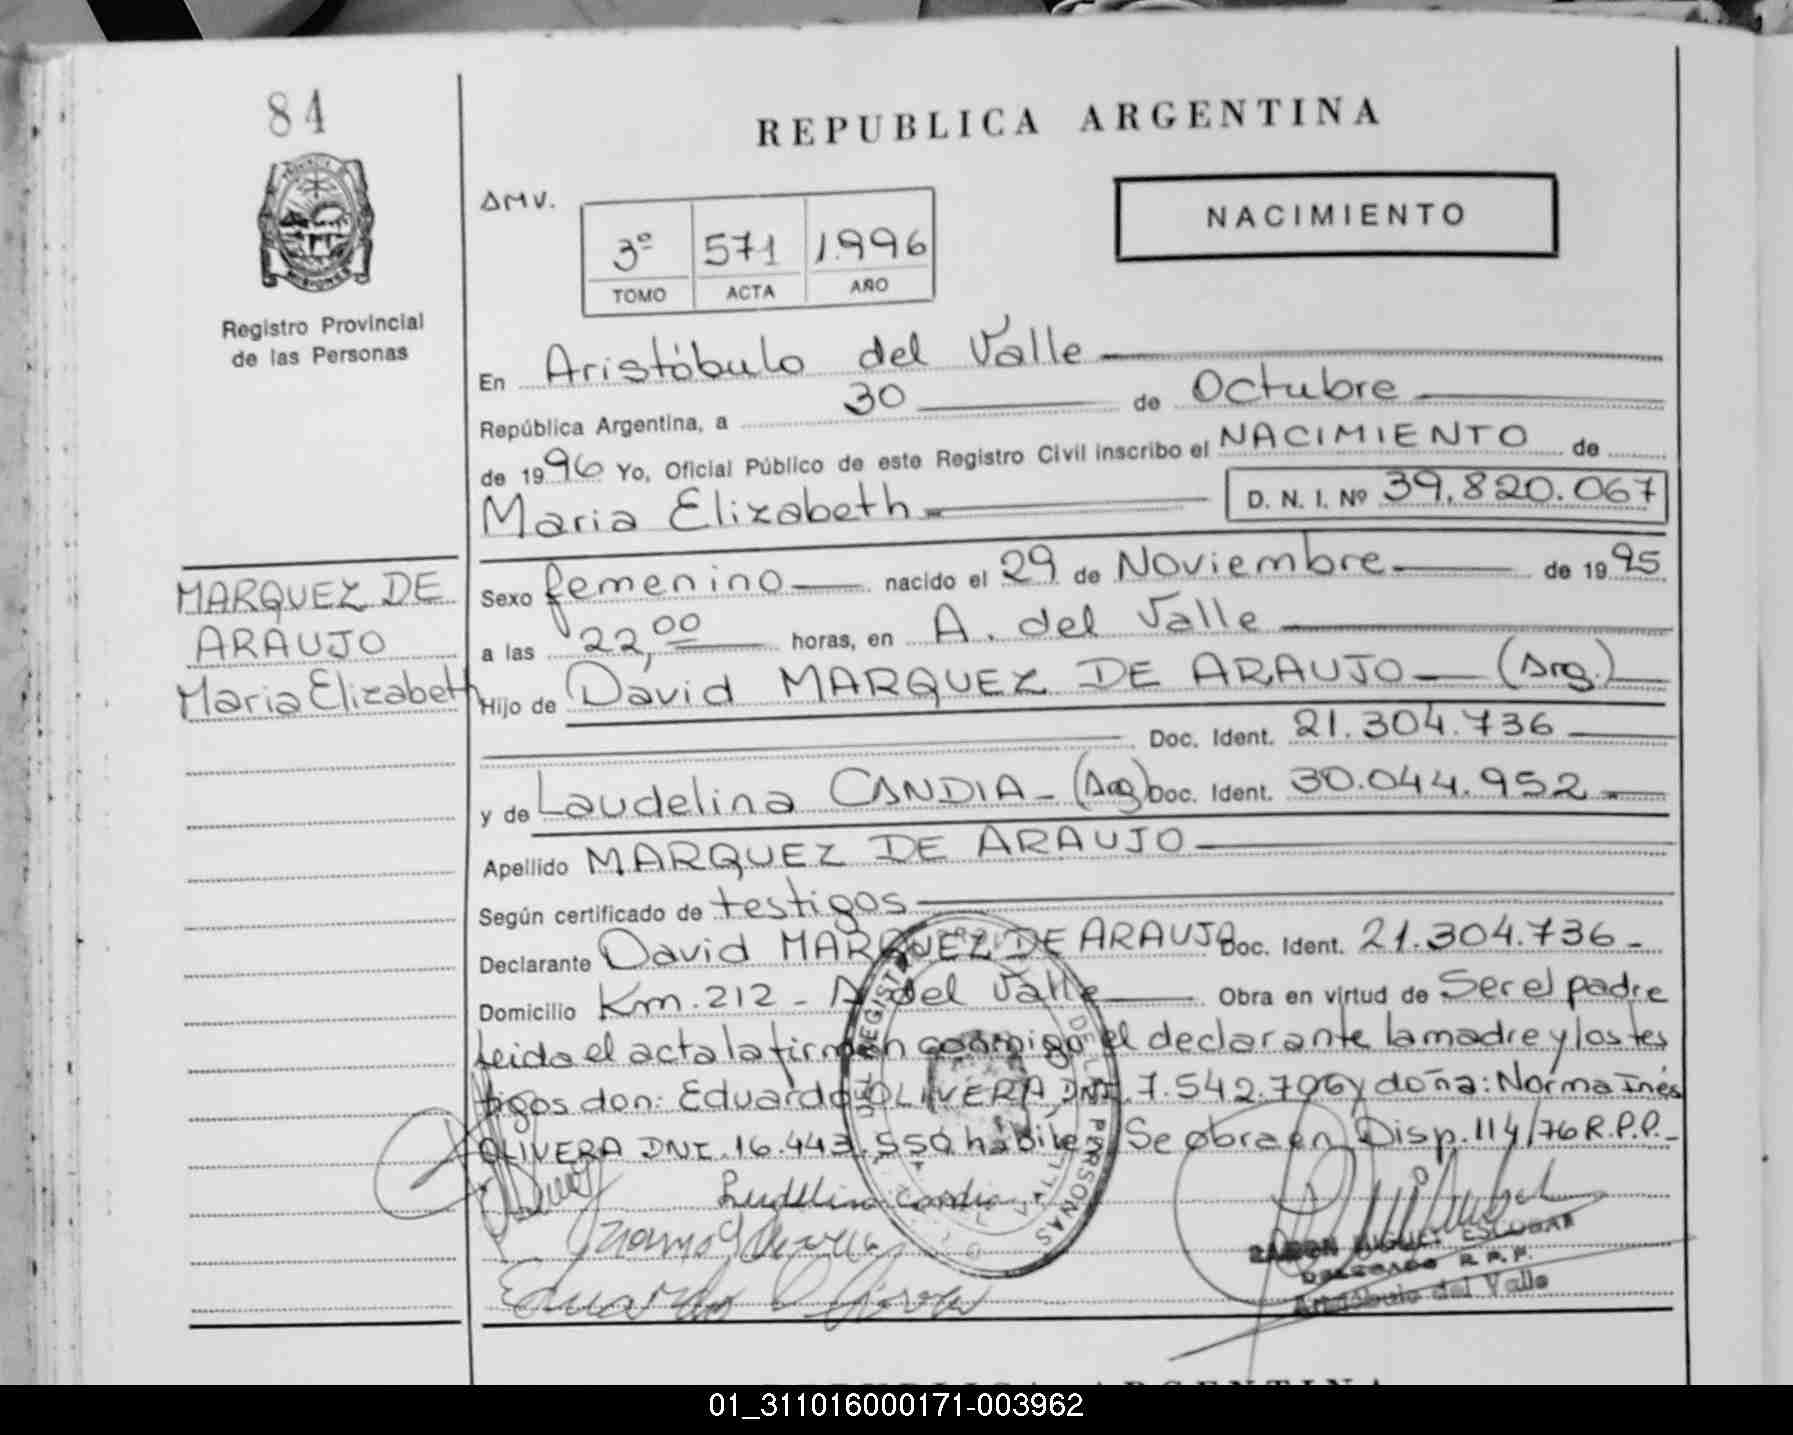 84
REPUBLICA ARGENTINA
AMV.
NACIMIENTO
3º 571 1.996
TOMO ACTA AÑO
Registro Provincial
de las Personas
En Aristóbulo del Valle
República Argentina, a 30 de Octubre
de 1996 Yo, Oficial Público de este Registro Civil inscribo el NACIMIENTO de
Maria Elizabeth D. N. I. Nº 39.820.067
MARQUEZ DE
ARAUJO
Maria Elizabeth
Sexo femenino nacido el 29 de Noviembre de 1995
a las 22,00 horas, en A. del Valle
Hijo de David MARQUEZ DE ARAUJO (Arg.)
Doc. Ident. 21.304.736
y de Laudelina CANDIA - (Arg) Doc. Ident. 30.044.952
Apellido MARQUEZ DE ARAUJO
Según certificado de testigos
Declarante David MARQUEZ DE ARAUJO Doc. Ident. 21.304.736 -
Domicilio Km. 212 - A. del Valle Obra en virtud de Ser el padre
leida el acta la firman conmigo el declarante la madre y los tes
tigos don: Eduardo OLIVERA DNI. 7.542.796 y doña: Norma Inés
OLIVERA DNI. 16.443.550 habile Se obra en Disp. 114/76 R.P.P.-
RAMON MIGUEL ESCOBAR
DELEGADO R.P.P.
Aristóbulo del Valle
REPUBLICA ARGENTINA
01_311016000171-003962